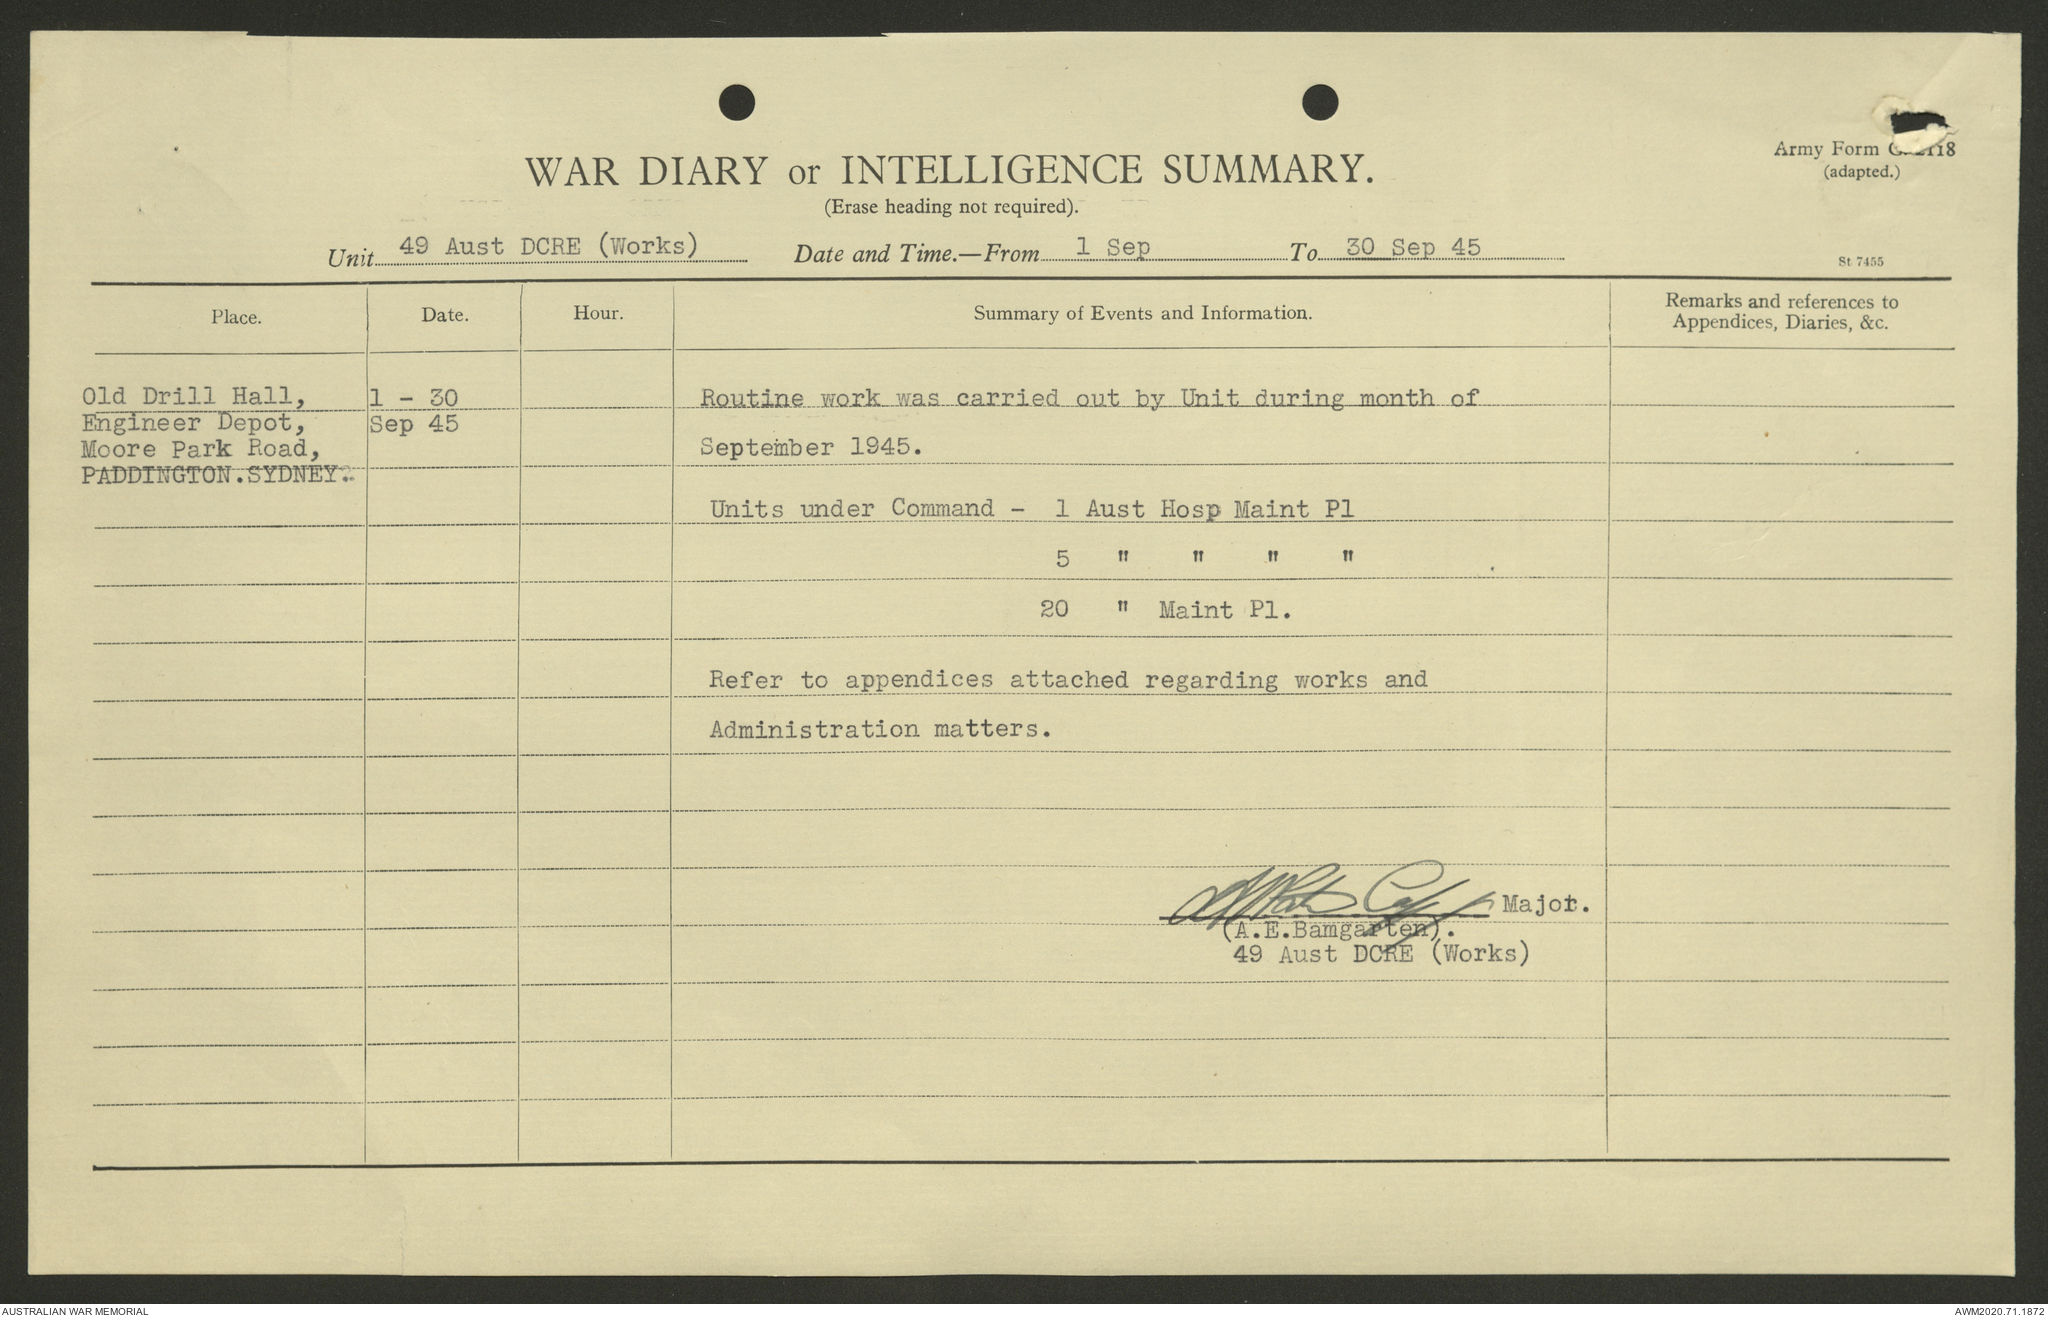 WAR DIARY or INTELLIGENCE SUMMARY.
(Erase heading not required).
Army Form C. 2118
(adapted.)
Unit 49 Aust DCRE (Works) Date and Time.—From 1 Sep To 30 Sep 45
St 7455
Place. Date. Hour. Summary of Events and Information. Remarks and references to
Appendices, Diaries, &c.
Old Drill Hall, 1 - 30 Routine work was carried out by Unit during month of
Engineer Depot, Sep 45
Moore Park Road, September 1945.
PADDINGTON.SYDNEY.
Units under Command - 1 Aust Hosp Maint Pl
5 " " " "
20 " Maint Pl.
Refer to appendices attached regarding works and
Administration matters.
Major.
(A.E.Bamgarten).
49 Aust DCRE (Works)
AUSTRALIAN WAR MEMORIAL
AWM2020.71.1872